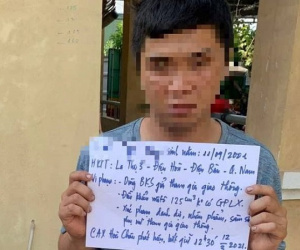 sinh năm: 11/09/2001
HKTT: La Thọ 3 - Điện Hoà - Điện Bàn - Q. Nam
Vi phạm: - Dùng BKS giả tham gia giao thông.
- Điều khiển môtô 125 cm³ k° có GPLX.
- Xúc phạm danh dự, nhân phẩm,
phụ nữ tham gia giao thông.
CAP Hoà Châu phát hiện, bắt giữ 12h30' 12/5/2021.